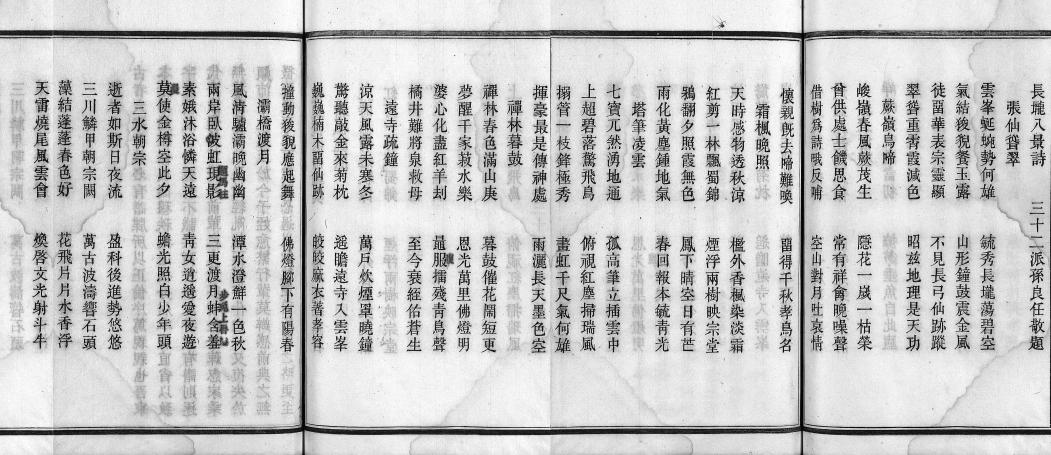 長壠八景詩　三十二派孫良任敬題
張仙聳翠
雲峯蜒蜿勢何雄　毓秀長壠蕩碧空
氣結狻猊餐玉露　山形鐘鼓震金風
徒留華表宗靈顯　不見長弓仙跡蹤
翠聳重霄霞減色　昭兹地理是天功
蕨嶺烏啼
峻嶺春風蕨茂生　隱花一歲一枯榮
曾供處士饑思食　常有祥禽晚噪聲
借樹為詩哦反哺　空山對月吐哀情
懷親旣去啼難喚　留得千秋孝鳥名
霜楓晚照
天時感物透秋涼　檻外香楓染淡霜
紅剪一林飄蜀錦　煙浮兩樹映宗堂
鴉翻夕照霞無色　鳳下晴空日有芒
雨化黃塵鍾地氣　春回報本毓靑光
塔筆凌雲
七寶兀然湧地通　孤高筆立插雲中
上超碧落驚飛鳥　俯視紅塵掃瑞風
搦管一枝鋒極秀　畫虹千尺氣何雄
揮豪最是傳神處　雨灑長天墨色空
禪林暮鼓
禪林春色滿山庚　暮鼓催花鬧短更
夢醒千家菽水樂　恩光萬里佛燈明
婆心化盡紅羊刧　最服擂殘靑鳥聲
橘井難將泉救母　至今衰絰伯蒼生
遠寺疏鐘
涼天風露未寒冬　萬戶炊煙罩曉鐘
驚聽敲金來菊枕　遙瞻遠寺入雲峯
巍巍楠木留仙跡　皎皎麻衣著孝容
撞動狻猊應起舞　佛燈腳下有陽春
灞橋渡月
風清驢灞晚幽幽　潭水澄鮮一色秋
兩岸臥虹現影　三更渡月含羞
素娥沐浴憐天遠　靑女逍遙愛夜遊
莫使金樽空此夕　蟾光照白少年頭
三水朝宗
逝者如斯日夜流　盈科後進勢悠悠
三川鱗甲朝宗闕　萬古波濤響石頭
藻結蓬蓬春色好　花飛片片水香浮
天雷燒尾風雲會　煥啓文光射斗牛